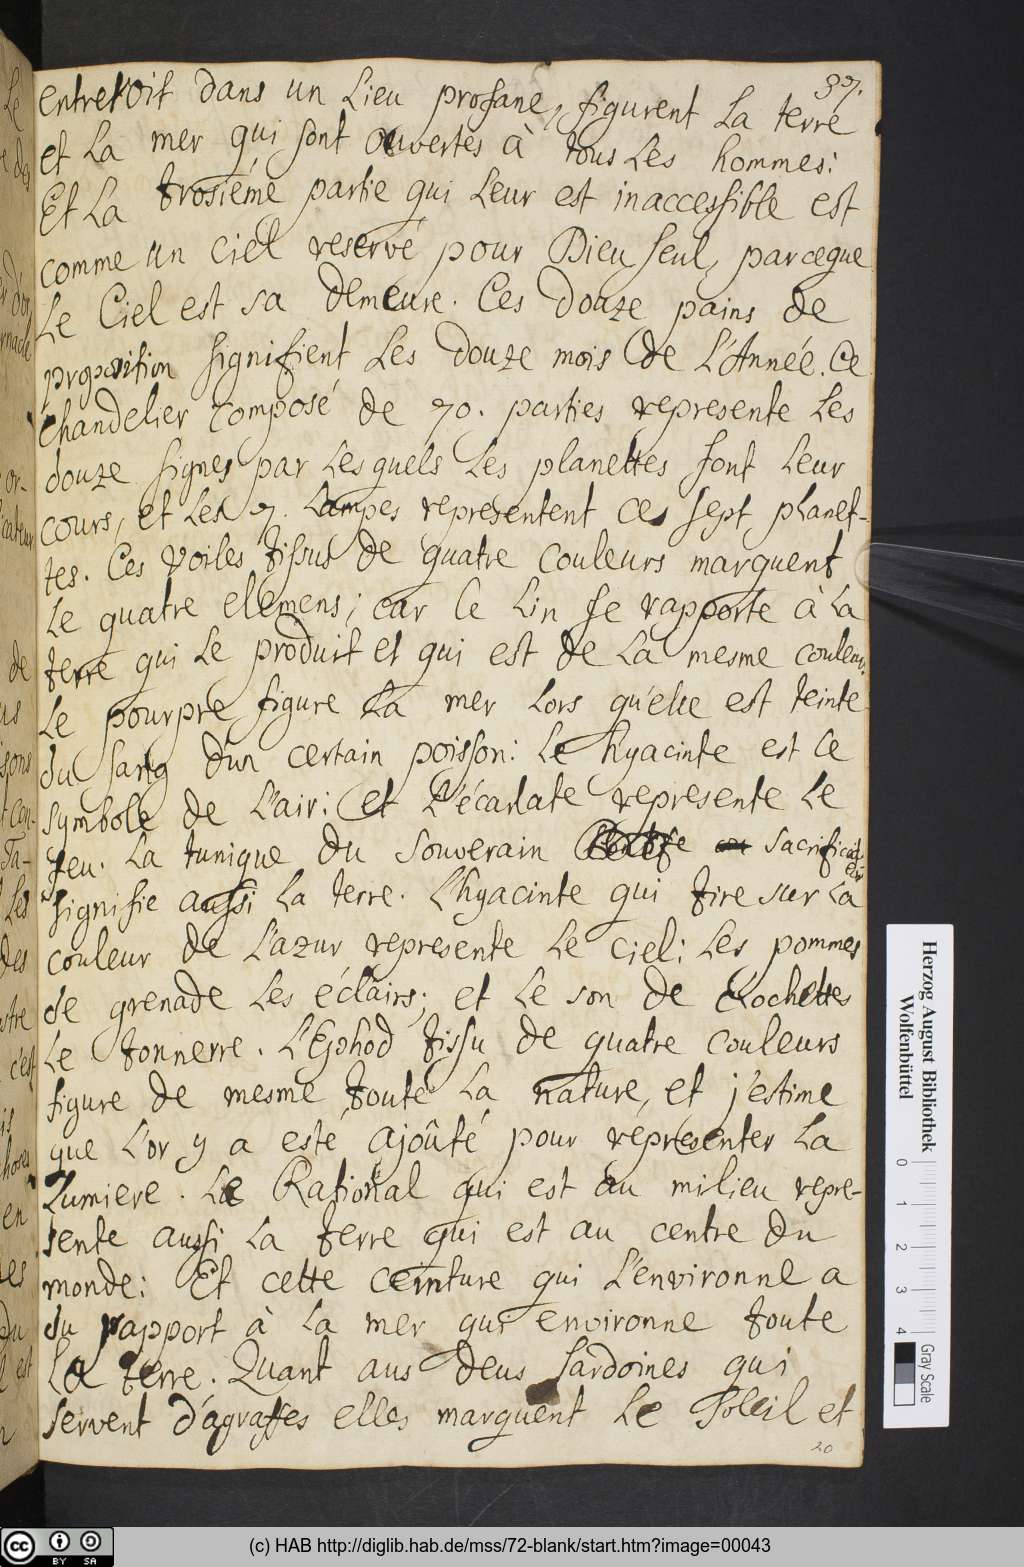 37.
entretoit dans un Lieu profane, figurent La terre
et La mer qui sont ouvertes à tous Les hommes:
Et La trosiéme partie qui Leur est inaccessible est
comme un ciel reservé pour Dieu seul, parceque
Le Ciel est sa demeure. Ces douze pains de
proposition signifient Les douze mois de L'Année. Ce
chandelier composé de 70. parties represente Les
douze signes par Lesquels Les planettes font Leur
cours, et Les 7. Lampes representent ces sept planet-
tes. Ces voiles tissus de quatre couleurs marquent
Le quatre elemens; car Ce Lin se rapporte à La
terre qui Le produit et qui est de La mesme couleur.
Le pourpre figure La mer Lors qu'elle est teinte
du sang d'un certain poisson: Le hyacinte est Le
symbole de L'air: et L'écarlate represente Le
feu. La tunique du souverain sacrificateur
signifie aussi La terre. L'hyacinte qui tire sur La
couleur de L'azur represente Le ciel: Les pommes
de grenade Les éclairs; et Le son de clochettes
Le tonnerre. L'Ephod tissu de quatre couleurs
figure de mesme toute La nature, et j'estime
que L'or y a esté ajoûté pour representer La
Lumiere. Le Rational qui est au milieu repre-
sente aussi La terre qui est au centre du
monde: Et cette ceinture qui L'environne a
du rapport à La mer qui environne toute
La terre. Quant aus deus sardoines qui
servent d'agraffes elles marquent Le Soleil et
20
Herzog August Bibliothek
Wolfenbüttel
0 1 2 3 4
Gray Scale
cc BY SA
(c) HAB http://diglib.hab.de/mss/72-blank/start.htm?image=00043